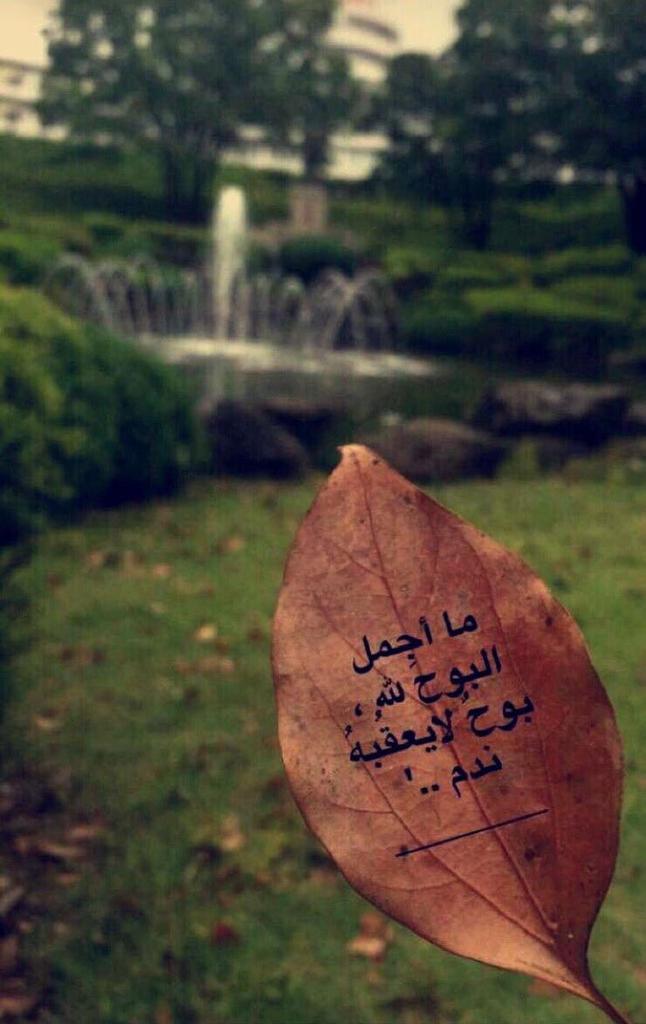 ما أجمل
البوحَ لله ،
بوحٌ لايعقبُهُ
ندم .. '